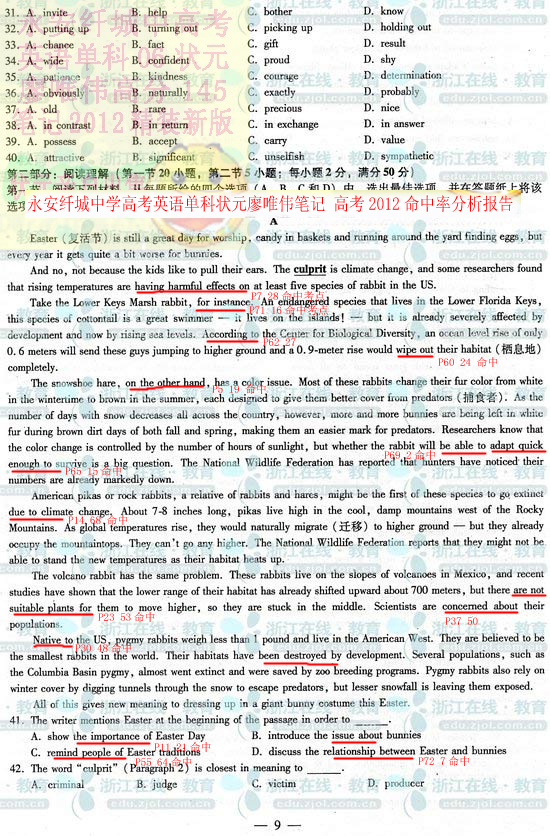 31. A. invite B. help C. bother D. know
32. A. putting up B. turning out C. picking up D. holding out
33. A. chance B. fact C. gift D. result
34. A. wide B. confident C. proud D. shy
35. A. patience B. kindness C. courage D. determination
36. A. obviously B. naturally C. exactly D. probably
37. A. old B. rare C. precious D. nice
38. A. in contrast B. in return C. in exchange D. in answer
39. A. possess B. accept C. carry D. value
40. A. attractive B. significant C. unselfish D. sympathetic
第二部分：阅读理解（第一节 20 小题，第二节 5 小题；每小题 2 分，满分 50 分）
永安纤城中学高考英语单科状元廖唯伟笔记 高考 2012 命中率分析报告
A
Easter (复活节) is still a great day for worship, candy in baskets and running around the yard finding eggs, but
every year it gets quite a bit worse for bunnies.
And no, not because the kids like to pull their ears. The culprit is climate change, and some researchers found
that rising temperatures are having harmful effects on at least five species of rabbit in the US.
P7,28 命中考点
Take the Lower Keys Marsh rabbit, for instance. An endangered species that lives in the Lower Florida Keys,
P71,16 命中考点
this species of cottontail is a great swimmer — it lives on the islands! — but it is already severely affected by
development and now by rising sea levels. According to the Center for Biological Diversity, an ocean level rise of only
P62 27
0.6 meters will send these guys jumping to higher ground and a 0.9-meter rise would wipe out their habitat (栖息地)
P60 24 命中
completely.
The snowshoe hare, on the other hand, has a color issue. Most of these rabbits change their fur color from white
P5 19 命中
in the wintertime to brown in the summer, each designed to give them better cover from predators (捕食者). As the
number of days with snow decreases all across the country, however, more and more bunnies are being left in white
fur during brown dirt days of both fall and spring, making them an easier mark for predators. Researchers know that
the color change is controlled by the number of hours of sunlight, but whether the rabbit will be able to adapt quick
P69 2 命中
enough to survive is a big question. The National Wildlife Federation has reported that hunters have noticed their
P65 15 命中
numbers are already markedly down.
American pikas or rock rabbits, a relative of rabbits and hares, might be the first of these species to go extinct
due to climate change. About 7-8 inches long, pikas live high in the cool, damp mountains west of the Rocky
P14 68 命中
Mountains. As global temperatures rise, they would naturally migrate (迁移) to higher ground — but they already
occupy the mountaintops. They can't go any higher. The National Wildlife Federation reports that they might not be
able to stand the new temperatures as their habitat heats up.
The volcano rabbit has the same problem. These rabbits live on the slopes of volcanoes in Mexico, and recent
studies have shown that the lower range of their habitat has already shifted upward about 700 meters, but there are not
suitable plants for them to move higher, so they are stuck in the middle. Scientists are concerned about their
P23 53 命中
P37 50
populations.
Native to the US, pygmy rabbits weigh less than 1 pound and live in the American West. They are believed to be
P30 48 命中
the smallest rabbits in the world. Their habitats have been destroyed by development. Several populations, such as
the Columbia Basin pygmy, almost went extinct and were saved by zoo breeding programs. Pygmy rabbits also rely on
winter cover by digging tunnels through the snow to escape predators, but lesser snowfall is leaving them exposed.
All of this gives new meaning to dressing up in a giant bunny costume this Easter.
41. The writer mentions Easter at the beginning of the passage in order to ______.
A. show the importance of Easter Day B. introduce the issue about bunnies
P11 21 命中
C. remind people of Easter traditions D. discuss the relationship between Easter and bunnies
P55 64 命中
P72 7 命中
42. The word "culprit" (Paragraph 2) is closest in meaning to ______.
A. criminal B. judge C. victim D. producer
— 9 —